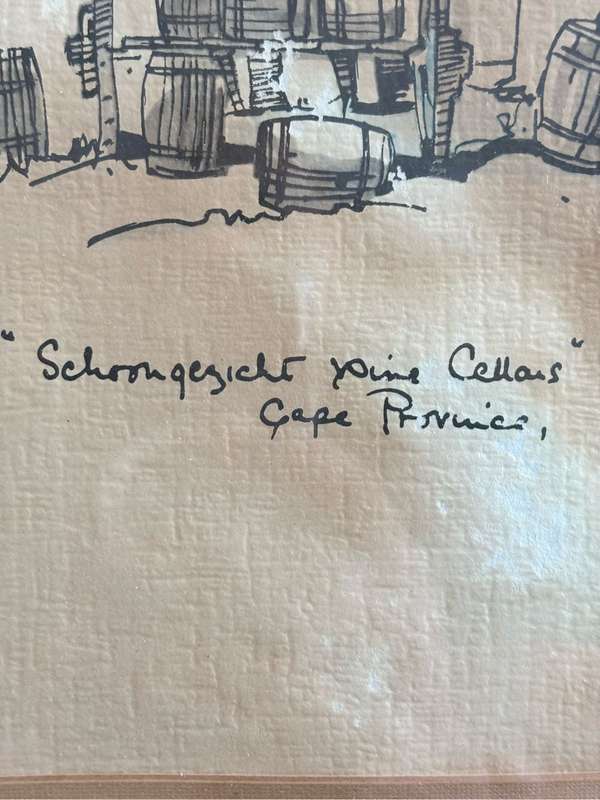 "Schoongezicht Wine Cellars"
Cape Province,